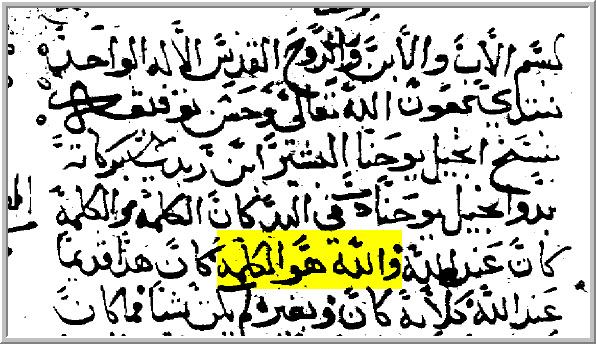 بسم الاب والابن والروح القدس الاله الواحد
نبتدي بعون الله تعالى وحسن توفيقه
بنسخ انجيل يوحنا ابن زبدي بركاته
بدو انجيل يوحنا في البدء كان الكلمه والكلمة
كان عند الله والله هو الكلمه كان هذا قديما
عند الله كلا به كان وبغيره لم يكن شيا مما كان